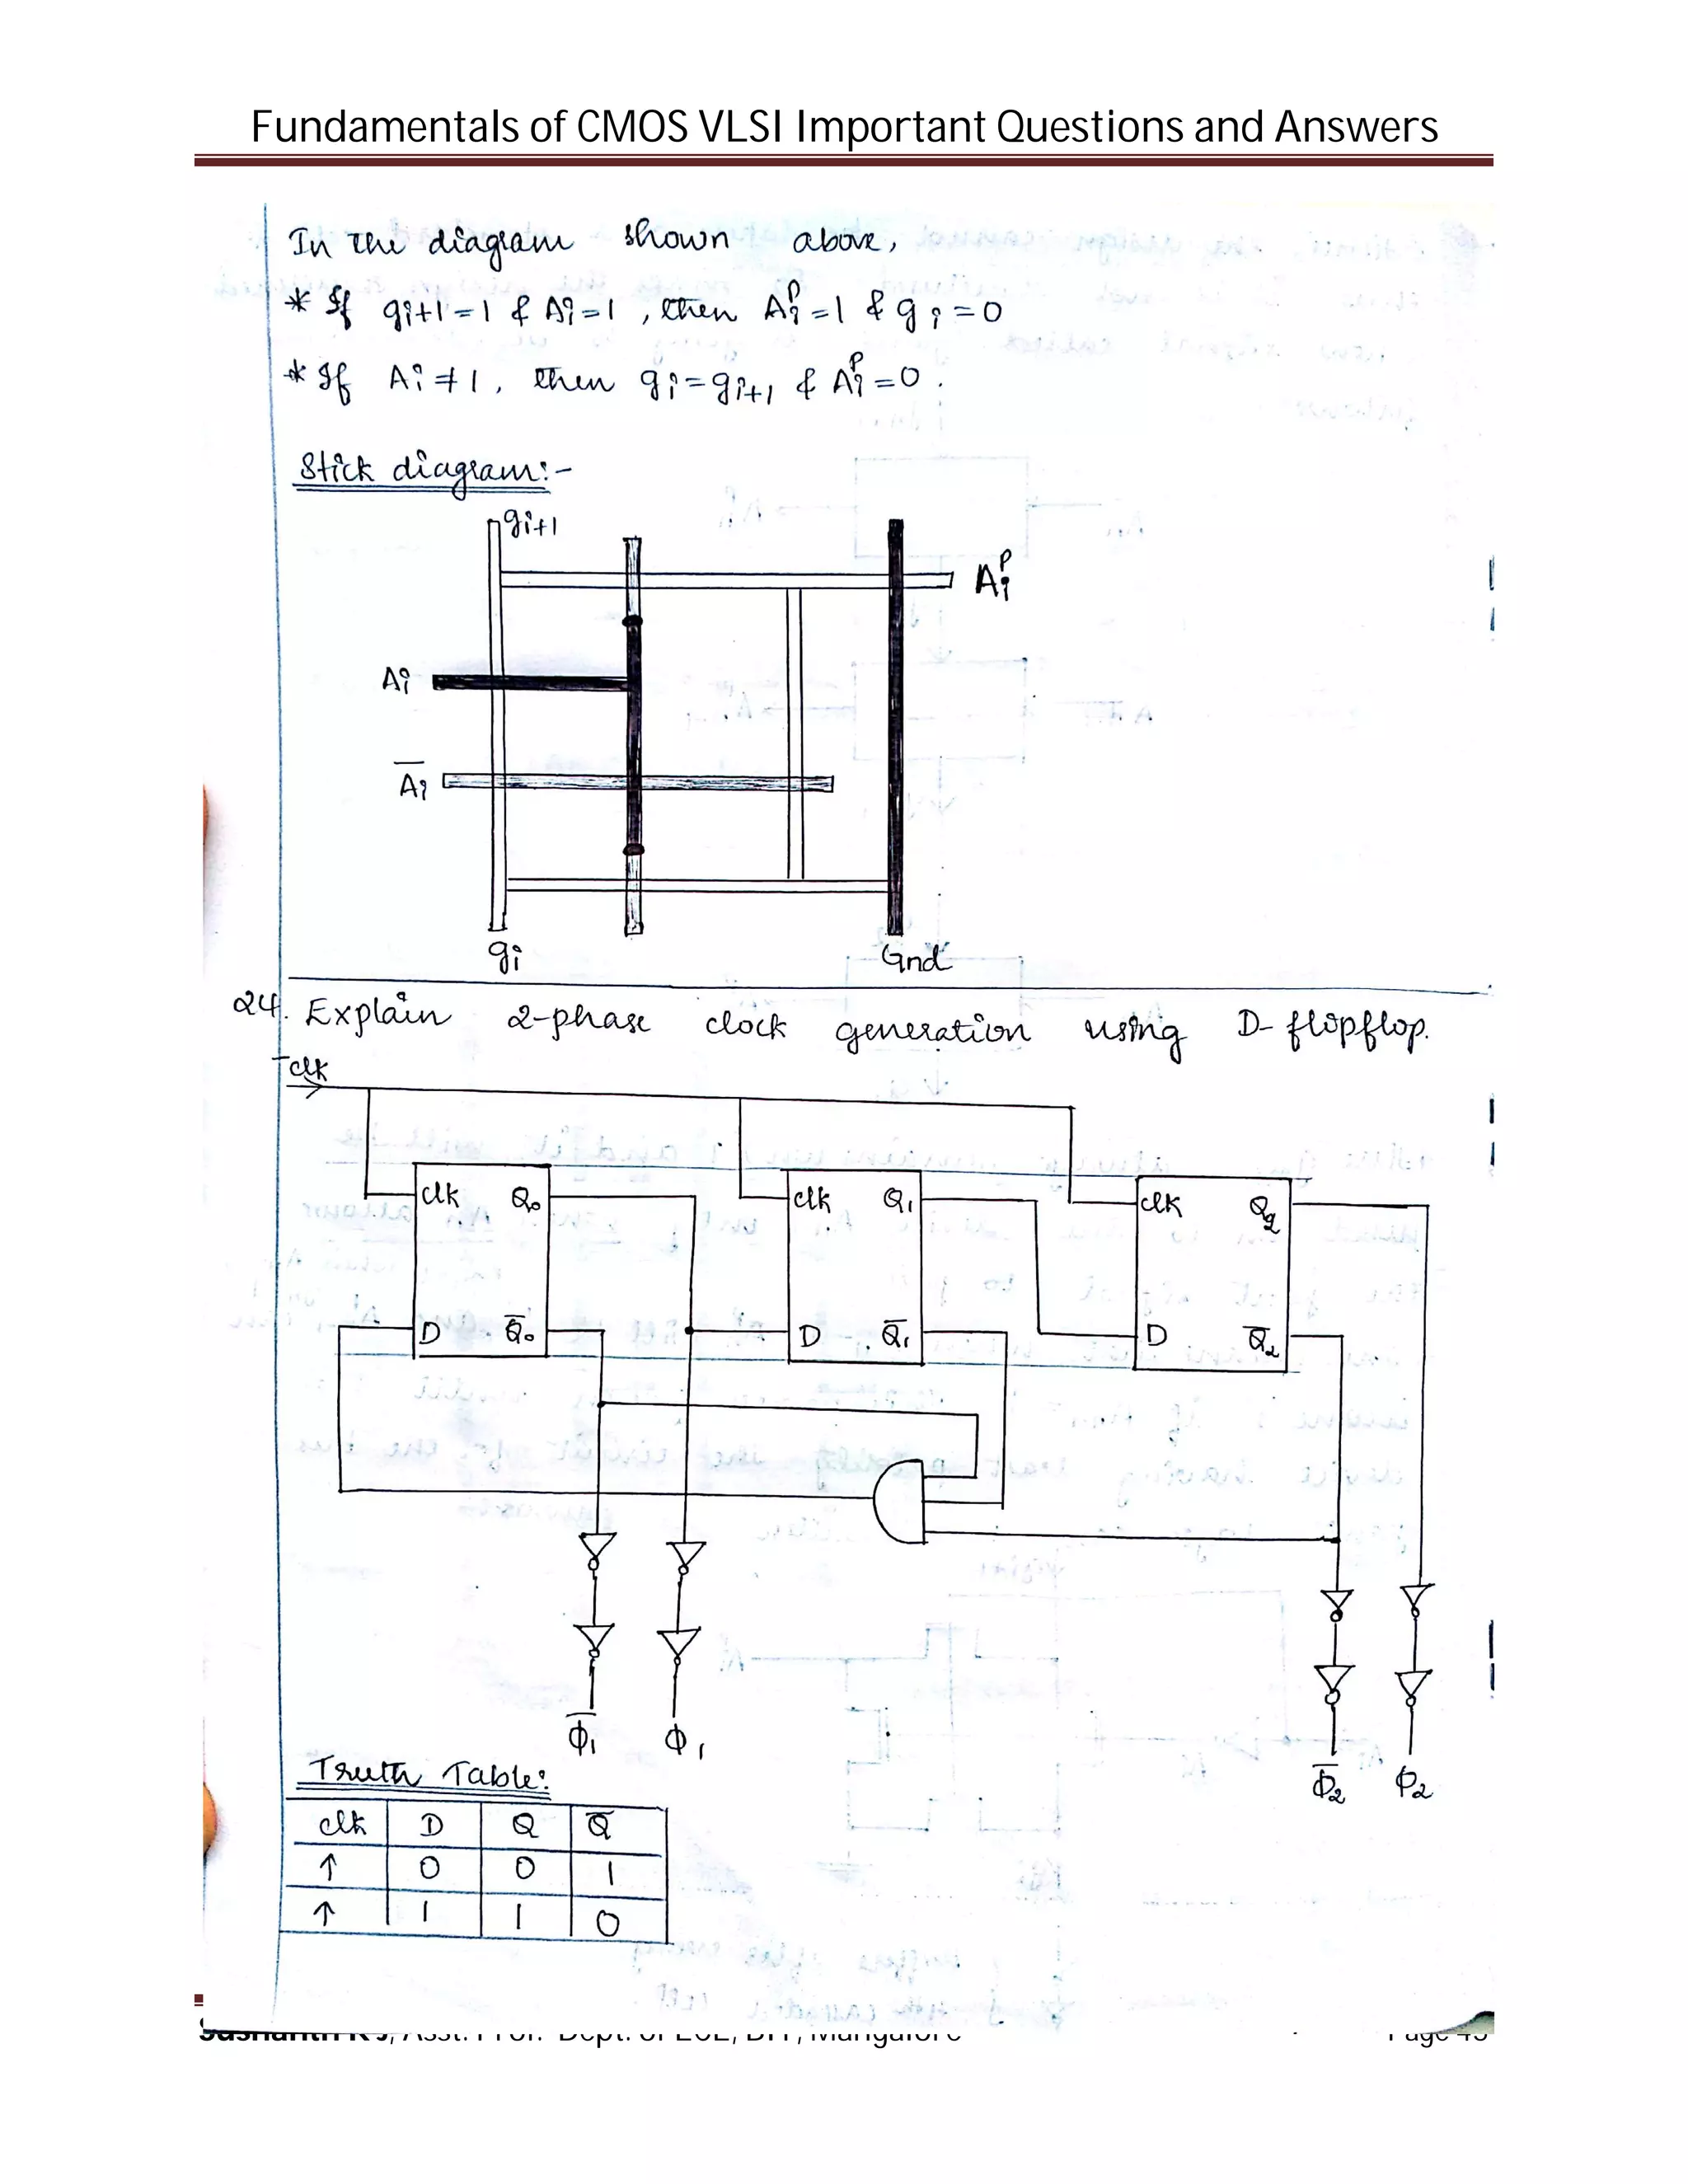 Fundamentals of CMOS VLSI Important Questions and Answers
In the diagram shown above,
* If gi+1=1 & Ai=1, then Aiᵖ=1 & gi=0
* If Ai≠1, then gi=gi+1 & Aiᵖ=0.
Stick diagram:-
gi+1
Aiᵖ
Ai
A̅i
gi
Gnd
Q4. Explain 2-phase clock generation using D-flopflop.
clk
clk Q0
clk Q1
clk Q2
D Q̅0
D Q̅1
D Q̅2
Φ̅1 Φ1
Φ̅2 Φ2
Truth Table:
clk D Q Q̅
↑ 0 0 1
↑ 1 1 0
Asst. Prof. Dept. of ECE, BIT, Mangalore
Page